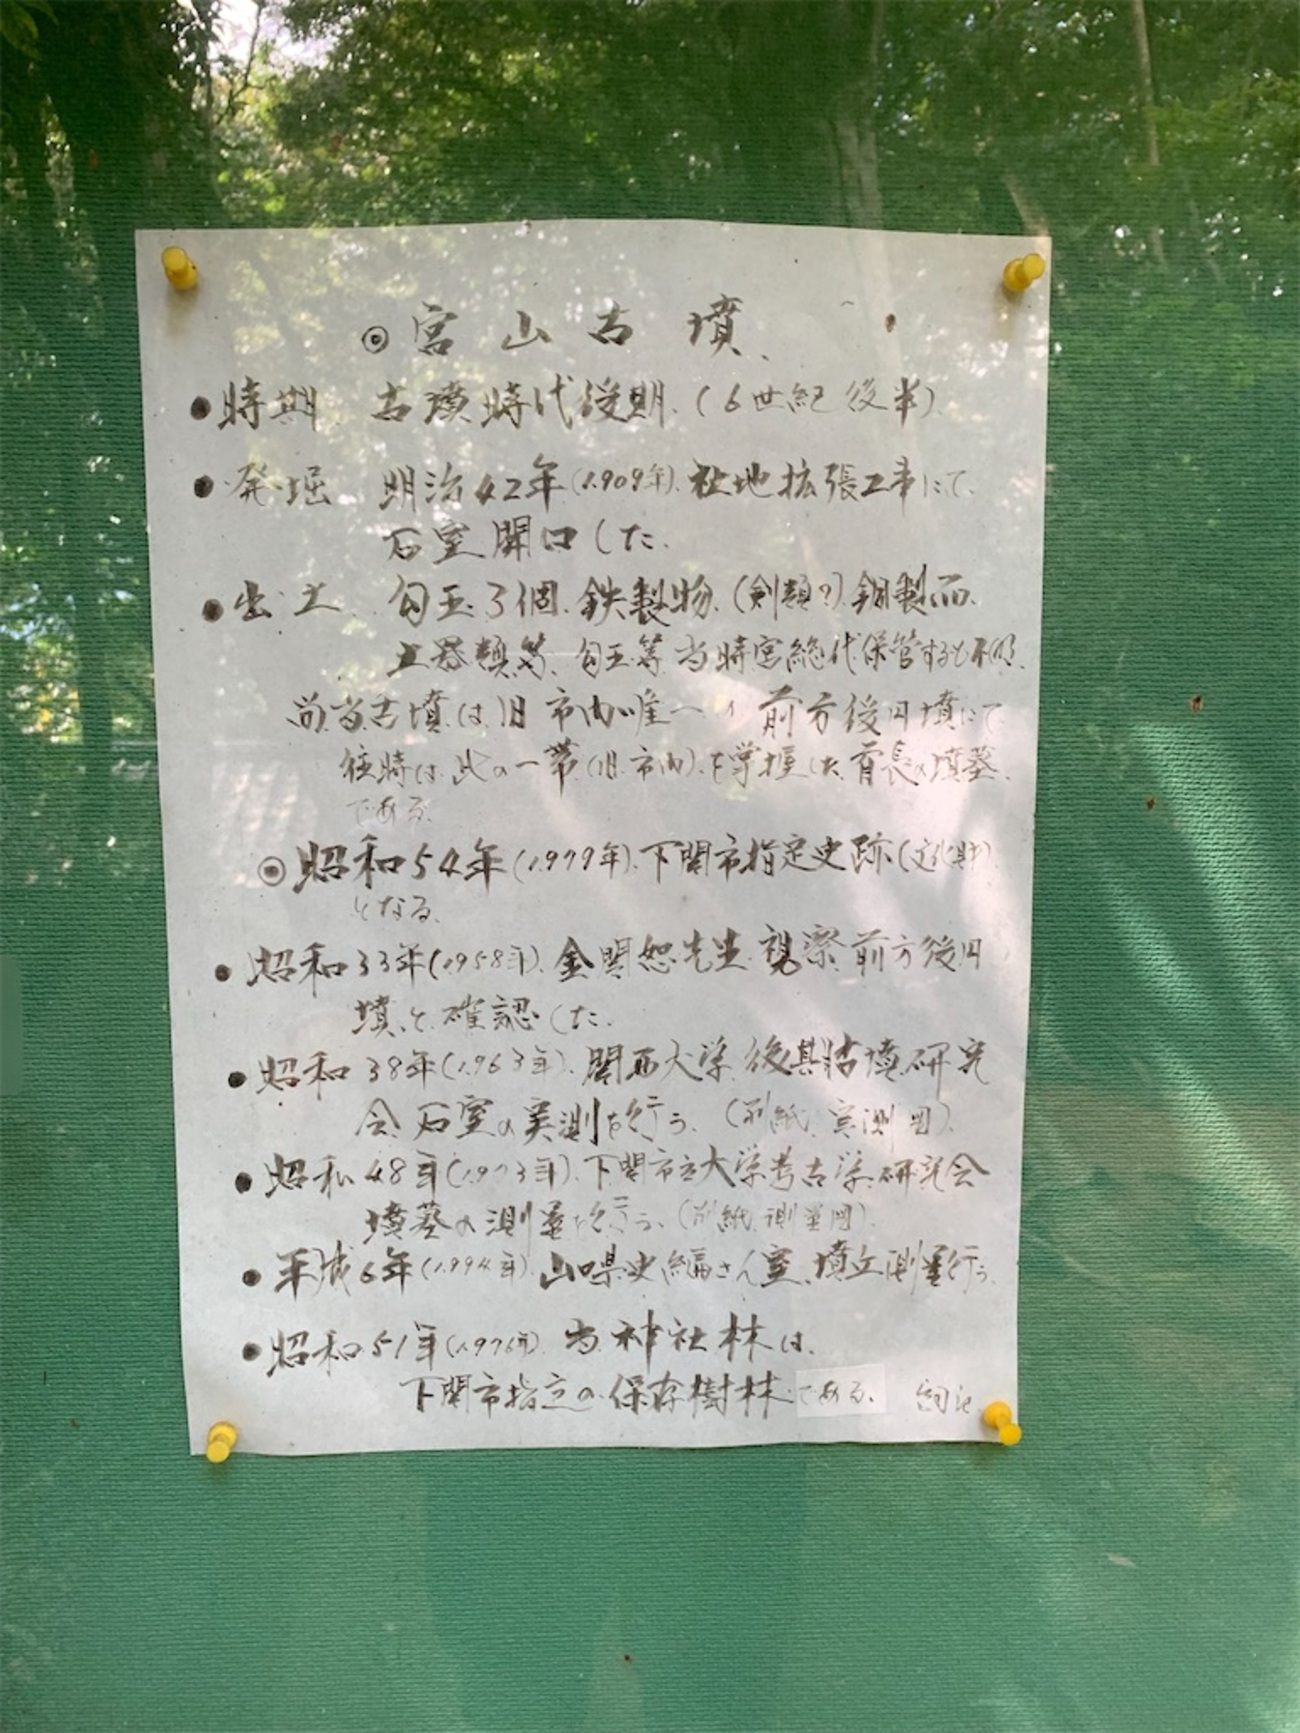 ◎宮山古墳
●時期 古墳時代後期.(6世紀後半)
●発掘 明治42年(1909年).社地拡張工事にて.
石室開口した.
●出土 勾玉3個.鉄製物.(剣類?)銅製
土器類等.勾玉等当時宮総代保管するも不明.
尚当古墳は旧市内唯一の前方後円墳にて
往時は此の一帯(旧市内)を掌握した首長の墳墓.
である.
◎昭和54年(1979年).下関市指定史跡(文化財)
となる.
●昭和33年(1958年).金関恕先生視察前方後円
墳と確認した.
●昭和38年(1963年).関西大学後期古墳研究
会石室の実測を行う.(別紙実測図).
●昭和48年(1973年).下関市立大学考古学研究会
墳墓の測量を行う.(別紙測量図).
●平成6年(1994年).山口県史編さん室.墳丘測量行う.
●昭和51年(1976年).当神社林は.
下関市指定の保存樹林である.